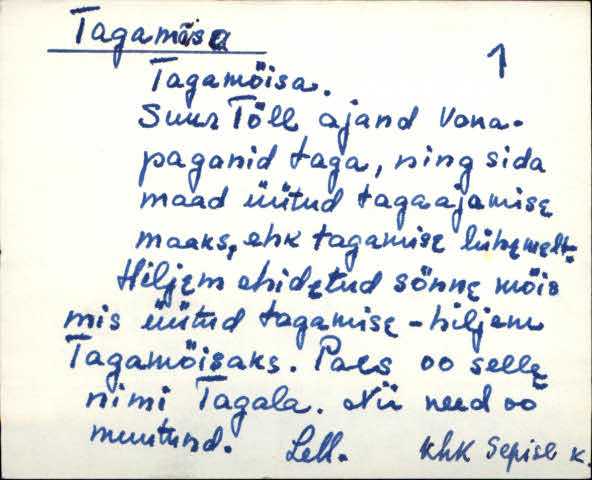 Tagamõisa
1
Tagamõisa.
Suur Tõll ajand Vana-
paganid taga, ning sida
maad üütud tagaajamise
maaks, ehk tagamise lühemelt.
Hiljem ehidetud sõnne mõis
mis üütud tagamise - hiljem
Tagamõisaks. Paes oo selle
nimi Tagala. Nii need oo
muutund. Lell. Khk Sepise k.